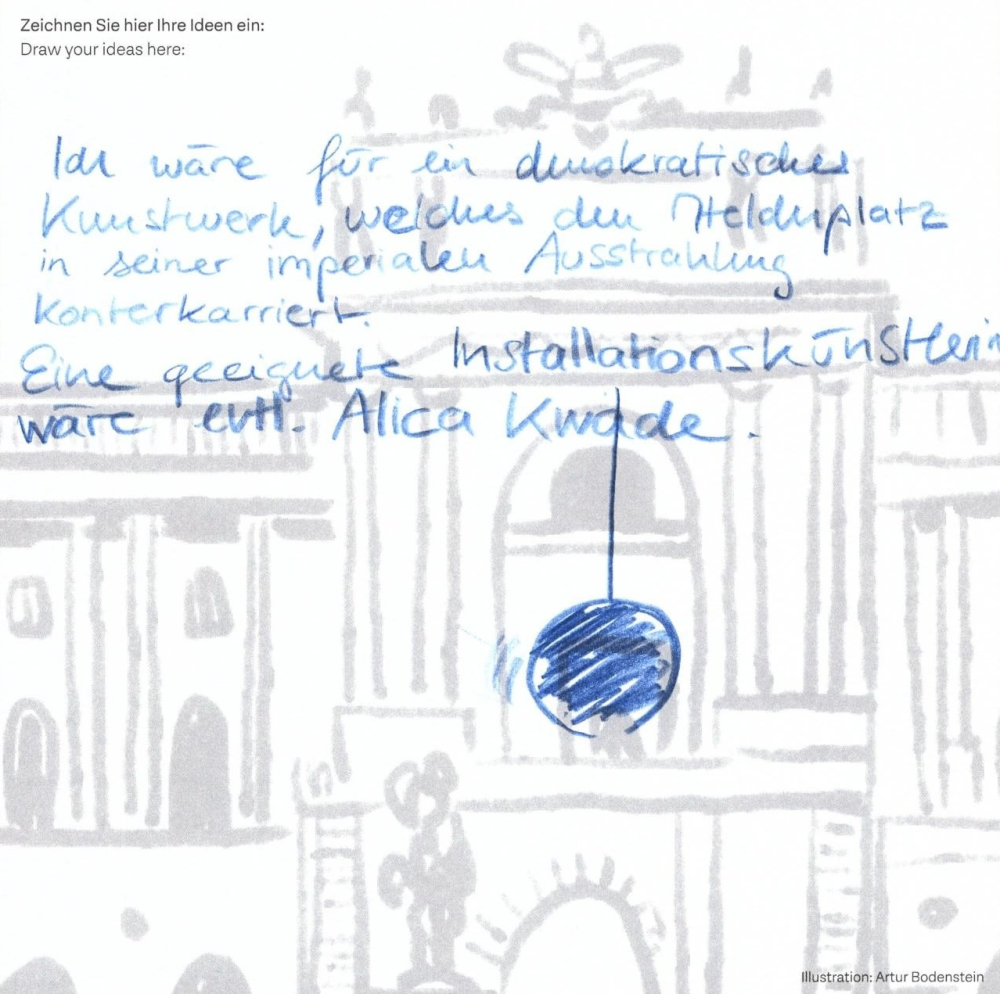 Zeichnen Sie hier Ihre Ideen ein:
Draw your ideas here:
Ich wäre für ein demokratisches
Kunstwerk, welches den Heldenplatz
in seiner imperialen Ausstrahlung
konterkarriert.
Eine geeignete Installationskünstlerin
wäre evtl. Alica Kwade.
Illustration: Artur Bodenstein